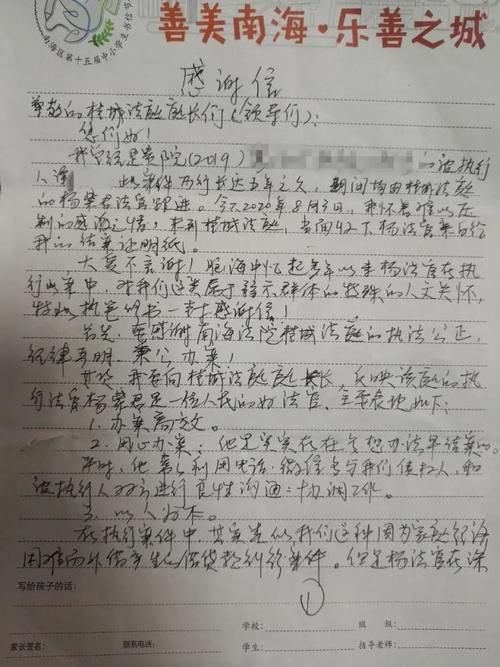 南海区第十五届中小学生书信
善美南海·乐善之城
感谢信
尊敬的桂城法庭庭长们(领导们):
您们好!
我曾经是贵院(2019) 的被执行
人 此案件历行长达五年之久,期间均由桂城法庭
的杨荣君法官跟进。今天2020年8月3日,我怀着难以压
制的感激之情,来到桂城法庭,当面收下杨法官亲自给
我的结案证明纸。
大爱不言谢!脑海中忆起多年以来杨法官在执
行此案中,对我们这类属于弱示群体的特殊的人文关怀,
特此执笔的书一封感谢信!
首先,感谢南海法院桂城法庭的执法公正,
纪律严明、秉公办案!
其次,我要向桂城法庭庭长,反映该庭的执
行法官杨荣君是一位人民的好法官、主要表现如下:
1.办案高效。
2.用心办案:他是实实在在专想办法早结案的。
平时,他善于利用电话、微信等与我们债权人,和
被执行人双方进行良性沟通、协调工作。
3.以人为本。
在执行案件中,其实是似我们这种因为家庭经济
困难而外借产生借贷款纠纷案件。但是杨法官在深
写给孩子的话:
①
学校: 班 级:
家长签名: 联系电话: 学生: 指导老师: